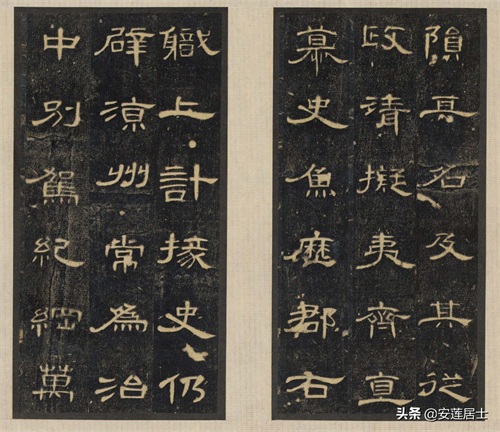 隕其名及其從
政清擬夷齊直
慕史魚歷郡右
職上計掾史仍
辟涼州常為治
中別駕紀綱萬
头条 @安莲居士